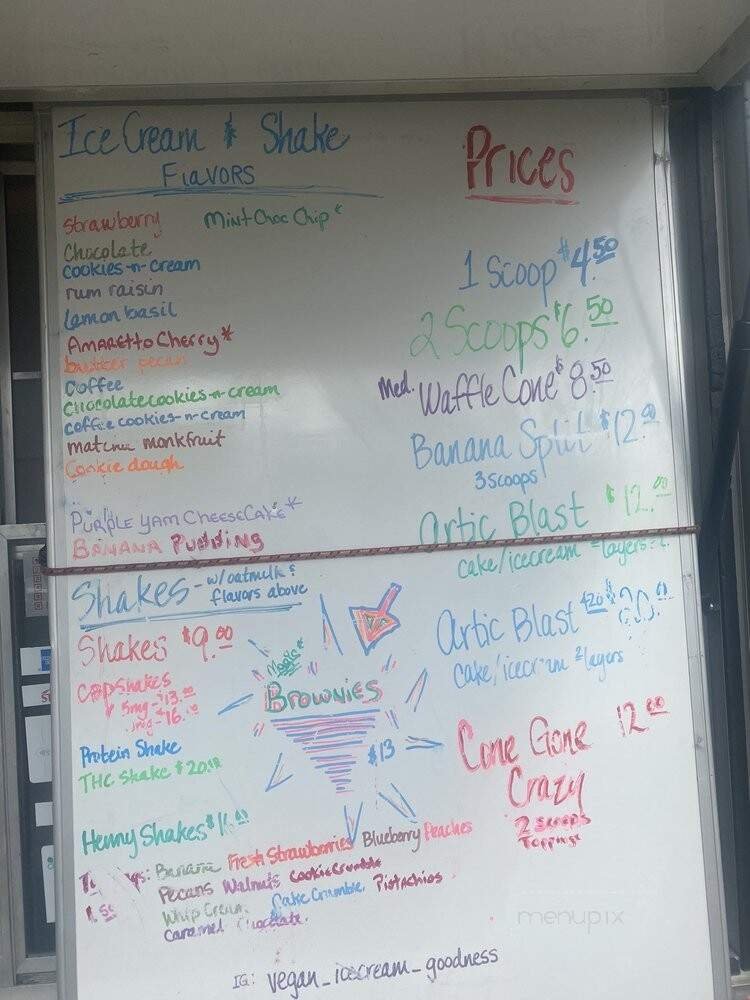 Ice Cream & Shake
Flavors
Strawberry
Mint Choc Chip*
Chocolate
cookies-n-cream
rum raisin
lemon basil
Amaretto Cherry*
butter pecan
Coffee
Chocolate cookies-n-cream
coffee cookies-n-cream
matcha monkfruit
Cookie dough
Purple Yam CheeseCake*
Banana Pudding
Prices
1 Scoop $4.50
2 Scoops $6.50
Med. Waffle Cone $8.50
Banana Split $12.00
3 scoops
Artic Blast $12.00
cake/icecream layers
Artic Blast $20.00
cake/icecream 2 layers
Cone Gone 12.00
Crazy
2 scoops
Toppings
Shakes - w/oatmilk &
flavors above
Shakes $9.00
5mg - $13.00
mg - 16.00
Protein Shake
THC Shake $20.00
Henny Shakes $16.00
Magic*
Brownies
$13
Banana Fresh Strawberries Blueberry Peaches
Pecans Walnuts Cookie Crumble
Whip Cream Cake Crumble Pistachios
Caramel Chocolate
IG: vegan_icecream_goodness
menupix